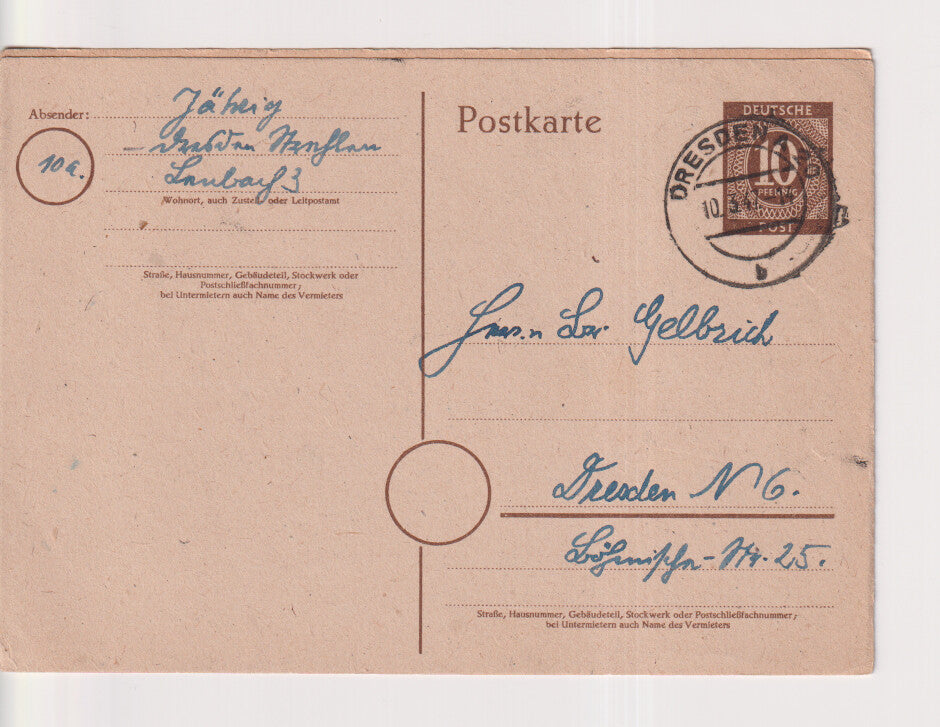 Absender:
Jähnig
10a.
Dresden Strehlen
Lenbach 3
Wohnort, auch Zustell- oder Leitpostamt
Straße, Hausnummer, Gebäudeteil, Stockwerk oder
Postschließfachnummer;
bei Untermietern auch Name des Vermieters
Postkarte
DEUTSCHE
10
PFENNIG
POST
DRESDEN
10.
b
Herrn Gelbrich
Dresden N 6.
Böhmische-Str. 25.
Straße, Hausnummer, Gebäudeteil, Stockwerk oder Postschließfachnummer;
bei Untermietern auch Name des Vermieters